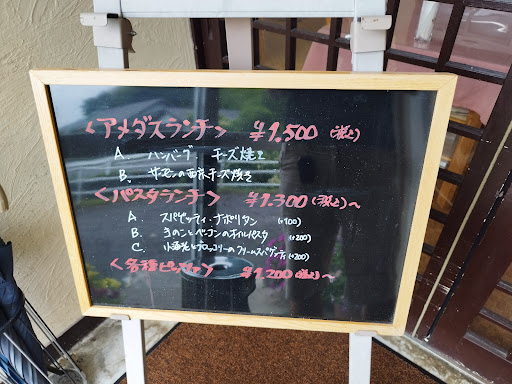 <アメダスランチ> ¥1,500 (税込)
A. ハンバーグ チーズ焼き
B. サーモンの西京チーズ焼き
<パスタランチ> ¥1,300 (税込)～
A. スパゲッティ・ナポリタン (+100)
B. きのことベーコンのオイルパスタ (+200)
C. 小海老とブロッコリーのクリームスパゲッティ (+200)
<各種ピッツァ> ¥1,200 (税込)～